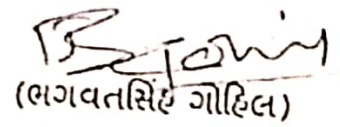 (ભગવતસિંહ ગોહિલ)